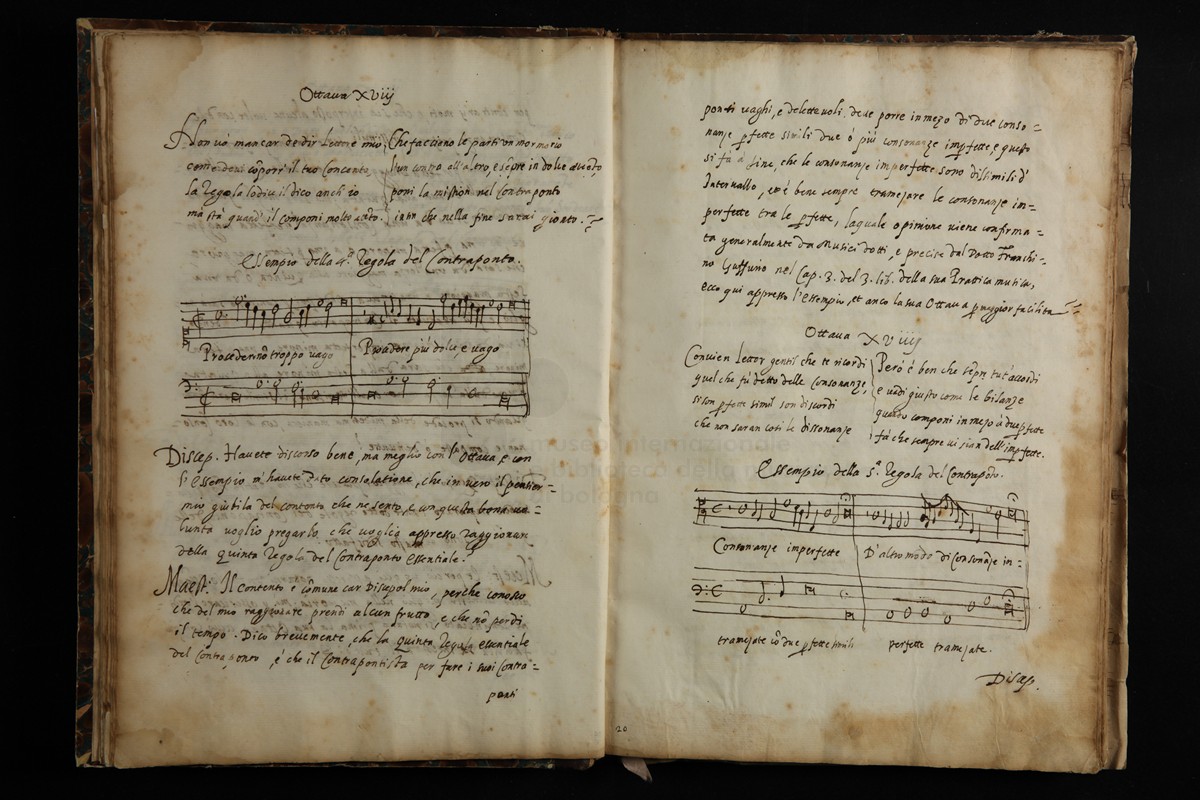 Ottava XViij
Non vò mancar de dir Lettore mio
come devi cõporr' il tuo Concento
la Regola lodivi dico anch'io
ma stà quand' il componi molto
Che facciano le parti un mormorio
l'un contra all'altro, e sẽpre in dolce
poni la mission nel contraponto
che nella fine sarai gionto.
Essempio della 4.ª Regola del Contraponto.
Procederno troppo vago
Procedere più dolce, e vago
Discep. Havete discorso bene, ma meglio con l'Ottava, e con
l'essempio m'havete dato consolatione, che in vero il pensier=
mio giubila del contento che ne sento, e con questa bona vo=
luntà voglio pregarlo, che voglia appresso raggionar
della quinta Regola del Contraponto essentiale.
Maest. Il Contento è cõmune car Discepol mio, perche conosco
che del mio raggionare prendi alcun frutto, e che nõ perdi
il tempo. Dico brevemente, che la quinta Regola essentiale
del Contraponto, è che il Contrapontista per fare i suoi Contra=
ponti
ponti vaghi, e delettevoli, deve porre in mezo di due conso=
nanze p̱fette simili due ò più consonanze imp̱fette, e questo
si fà à fine, che le consonanze imperfette sono dissimili d'
Intervallo, et è bene sempre tramezare le consonanze im=
perfette tra le p̱fette, la quale opinione viene confirma=
ta generalmente da Musici dotti, e precise dal Dotto Franchi=
no Gaffurio nel Cap. 3. del 3. lib. della sua Prattica musica,
ecco qui appresso l'essempio, et anco la sua Ottava p̱ maggior facilità
Ottava XViiij
Convien Lettor gentil che te ricordi
quel che fù detto delle Consonanze,
si son p̱fette simil son discordi
che non saran così le dissonanze
Però è ben che sẽpre tut'accordi
e vadi giusto come le bilanze
quando componi in mezo à due p̱fette
fà che sempre vi sian dell'imp̱fette.
Essempio della 5.ª Regola del Contrapõto.
Consonanze imperfette
D'altro modo di consonãze im=
tramezate cõ due p̱fette simili
perfette tramezate.
Discep.
20
museo internazionale
e biblioteca della musica
bologna